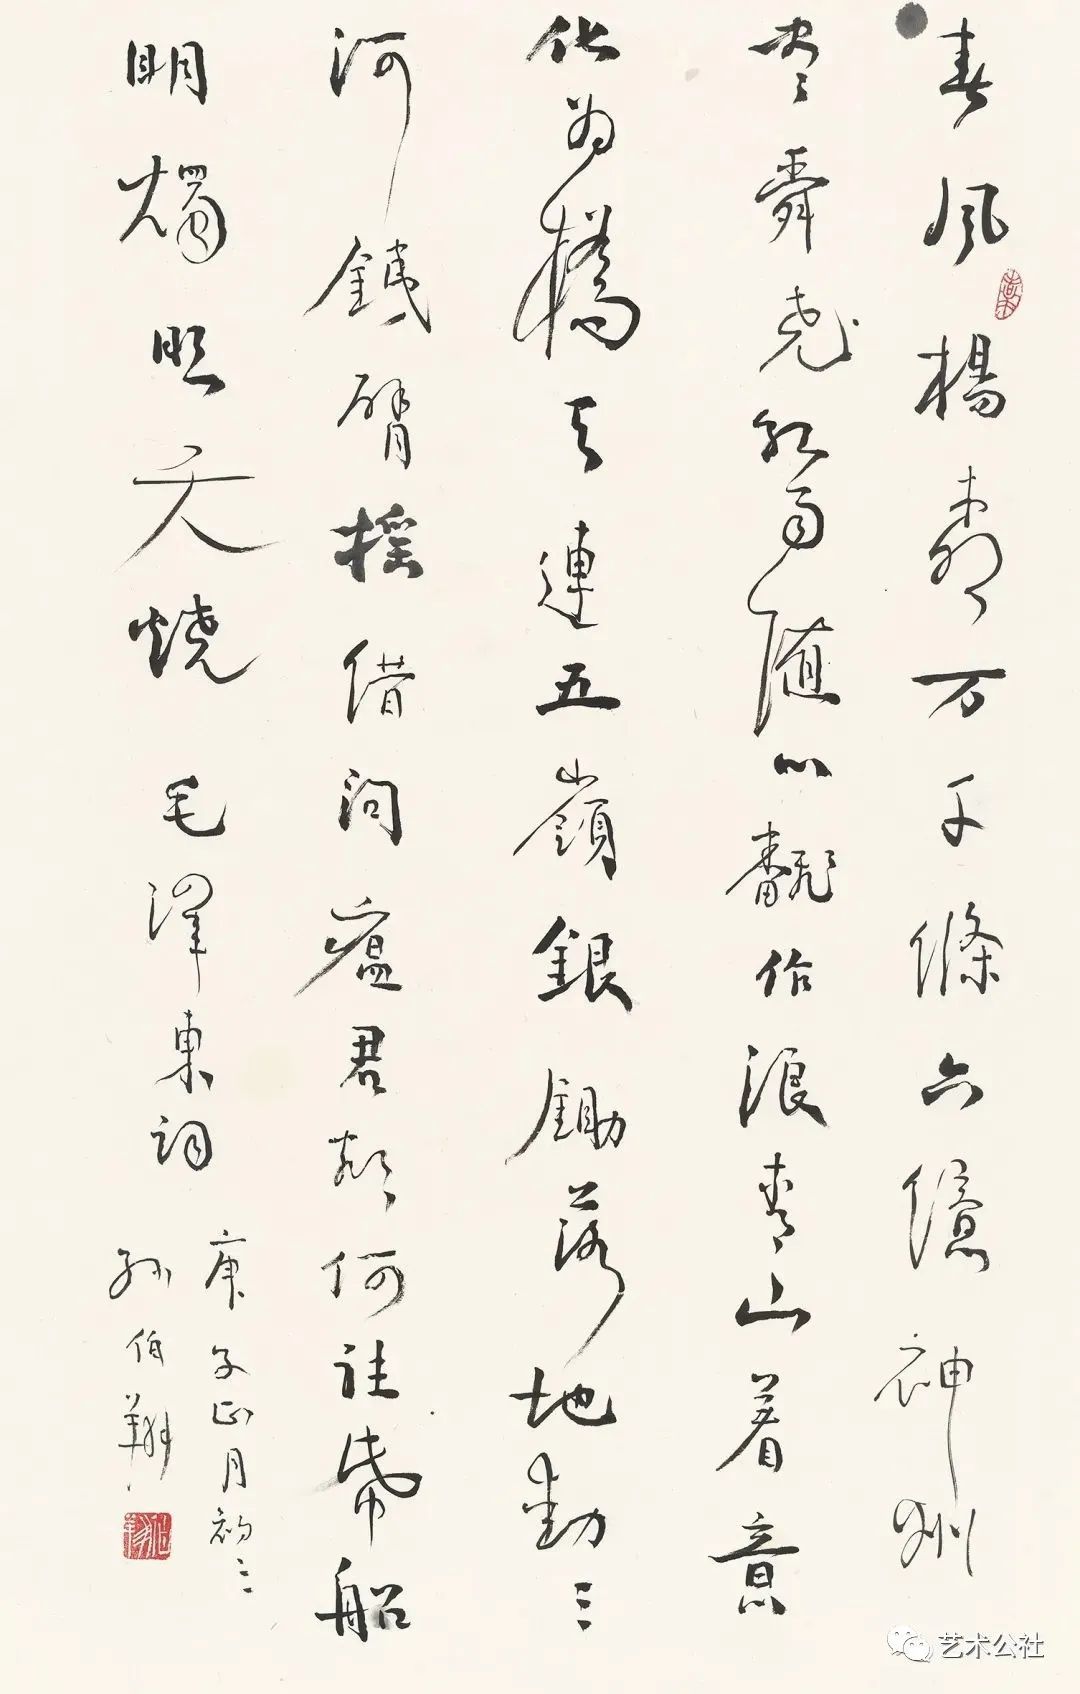 春風楊柳万千條六億神州
尽舜尧紅雨随心翻作浪青山着意
化为橋天連五嶺銀鋤落地動三
河鐵臂摇借问瘟君欲何往紙船
明燭照天燒 毛澤東詞
庚子正月初三
孫伯翔
艺术公社